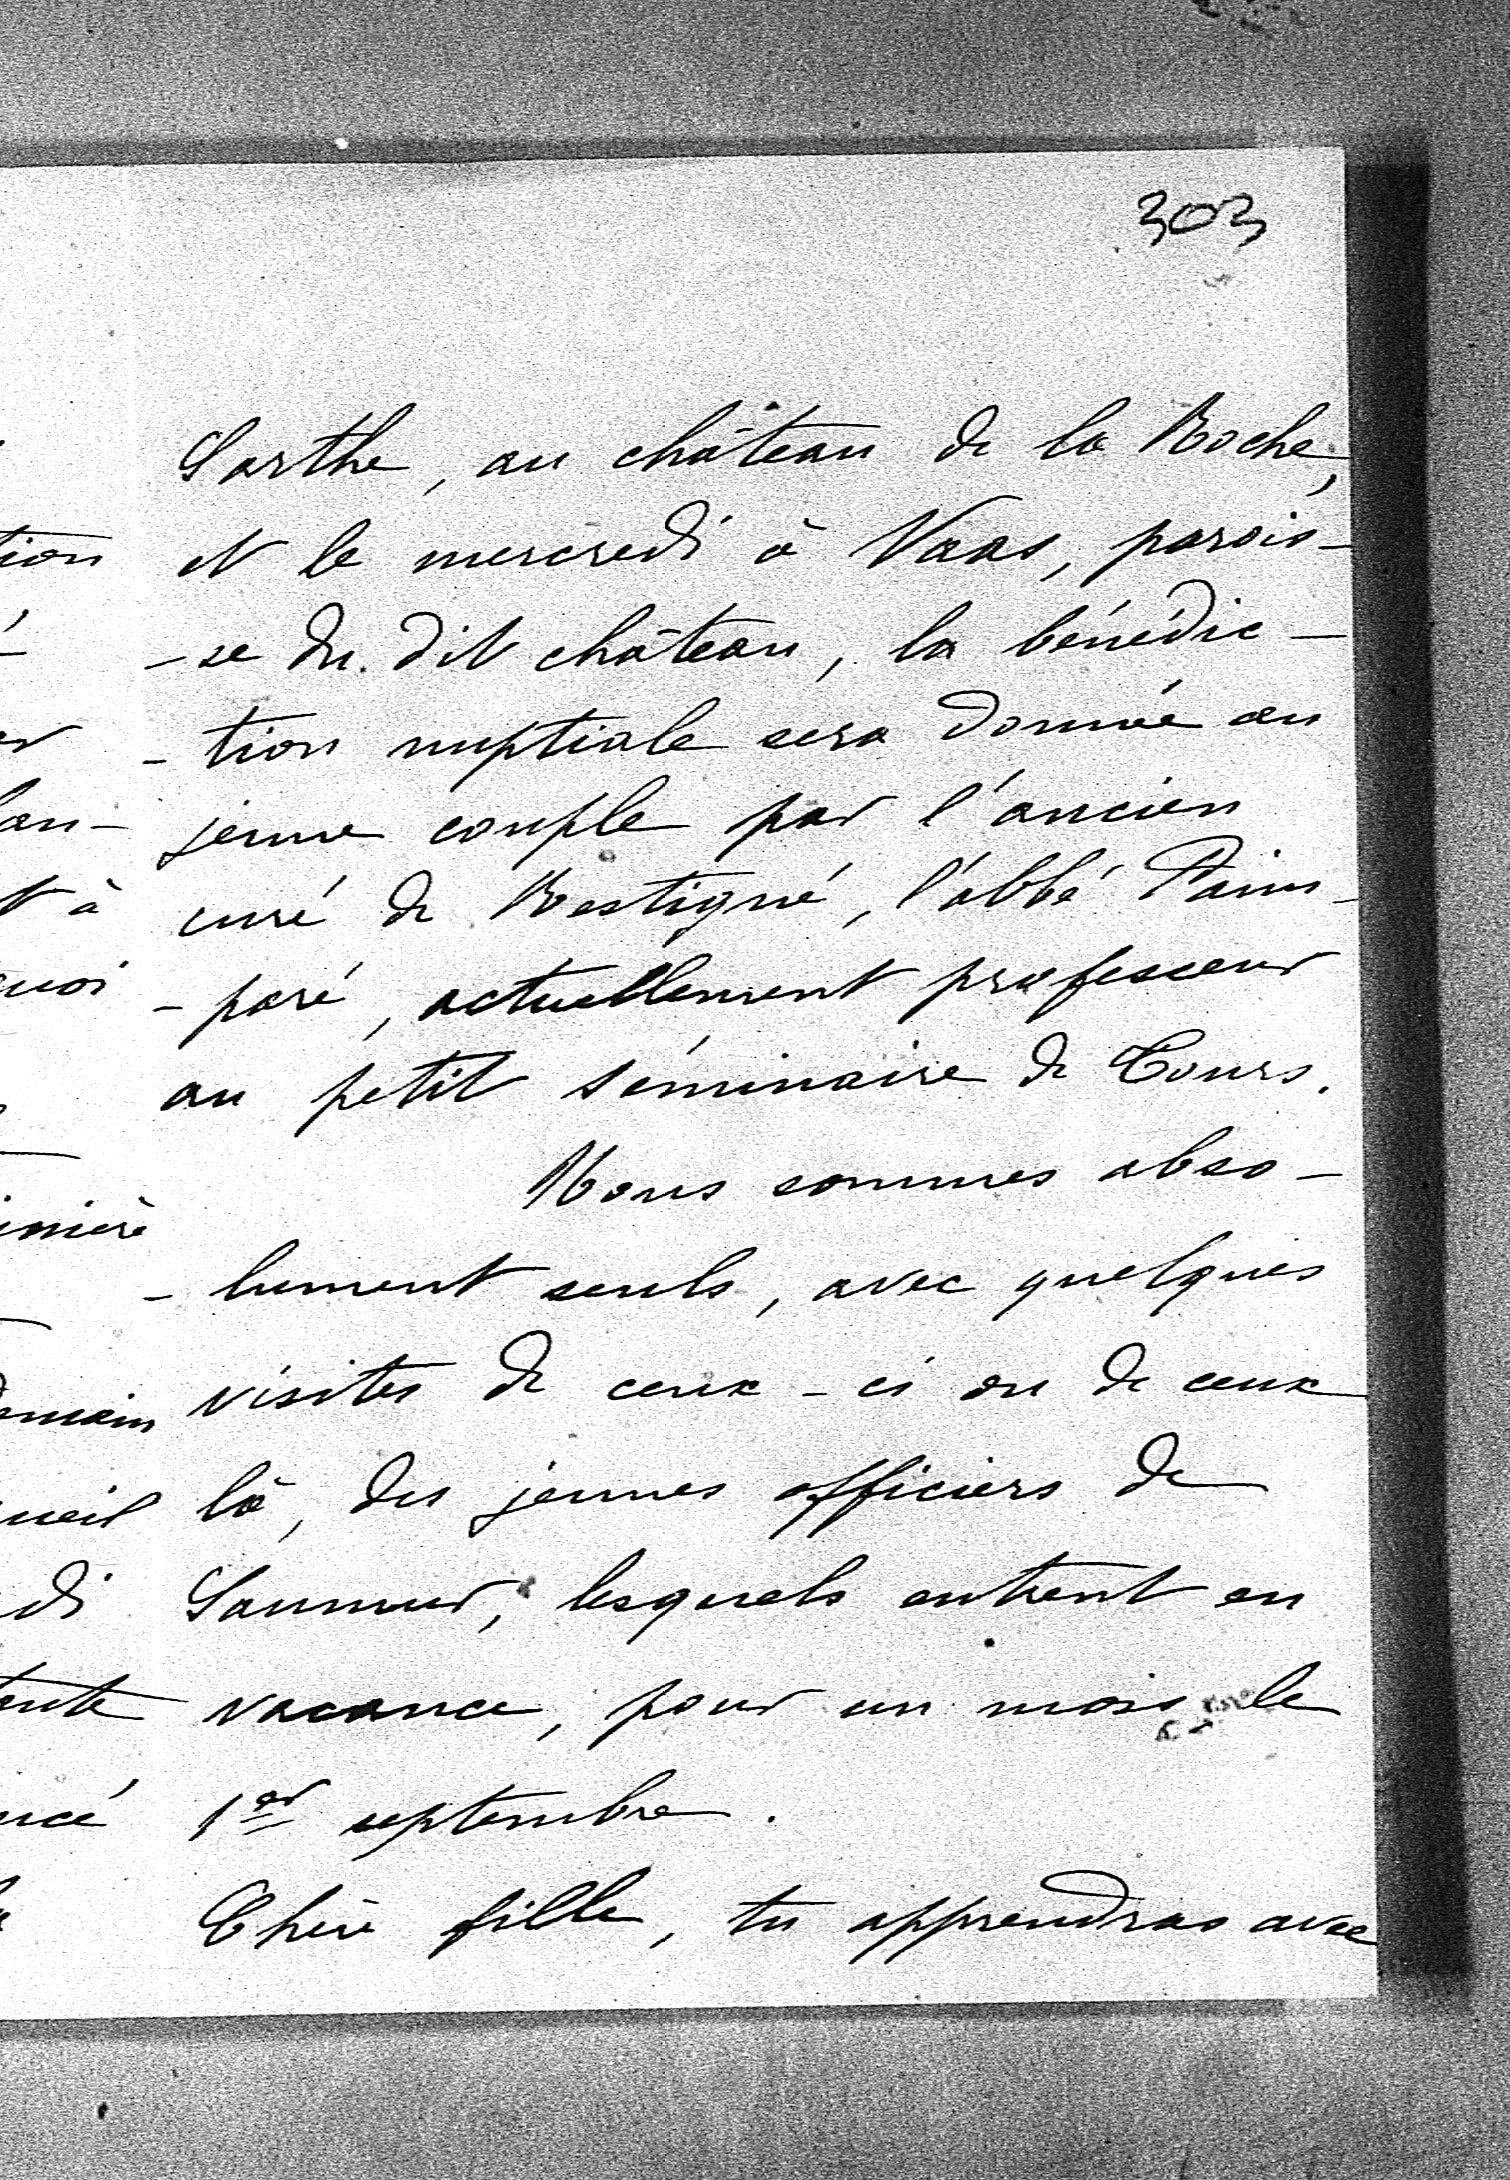 303
Sarthe, au château de la Roche,
et le mercredi à Vaas, parois-
-se du dit château, la bénédic-
-tion nuptiale sera donnée au
jeune couple par l'ancien
curé de Restigné, l'abbé Pain-
-paré, actuellement professeur
au petit séminaire de Tours.
Nous sommes abso-
-lument seuls, avec quelques
visites de ceux-ci ou de ceux
là, des jeunes officiers de
Saumur, lesquels entrent en
vacance, pour un mois le
1er septembre.
Chère fille, tu apprendras avec
tion
lan-
t à
quoi
di